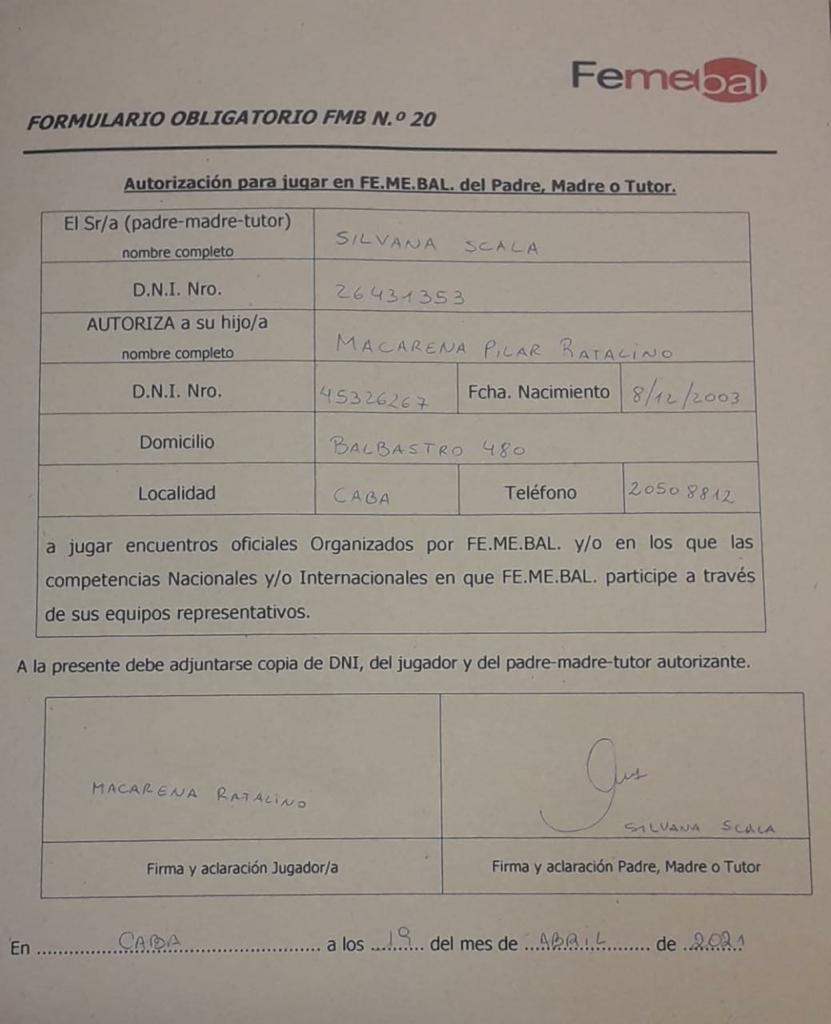 Femebal
FORMULARIO OBLIGATORIO FMB N.º 20
Autorización para jugar en FE.ME.BAL. del Padre, Madre o Tutor.
El Sr/a (padre-madre-tutor)
nombre completo
SILVANA SCALA
D.N.I. Nro.
26431353
AUTORIZA a su hijo/a
nombre completo
MACARENA PILAR RATALINO
D.N.I. Nro.
45326267
Fcha. Nacimiento
8/12/2003
Domicilio
BALBASTRO 480
Localidad
CABA
Teléfono
20508812
a jugar encuentros oficiales Organizados por FE.ME.BAL. y/o en los que las
competencias Nacionales y/o Internacionales en que FE.ME.BAL. participe a través
de sus equipos representativos.
A la presente debe adjuntarse copia de DNI, del jugador y del padre-madre-tutor autorizante.
MACARENA RATALINO
SILVANA SCALA
Firma y aclaración Jugador/a
Firma y aclaración Padre, Madre o Tutor
En CABA a los 19 del mes de ABRIL de 2021